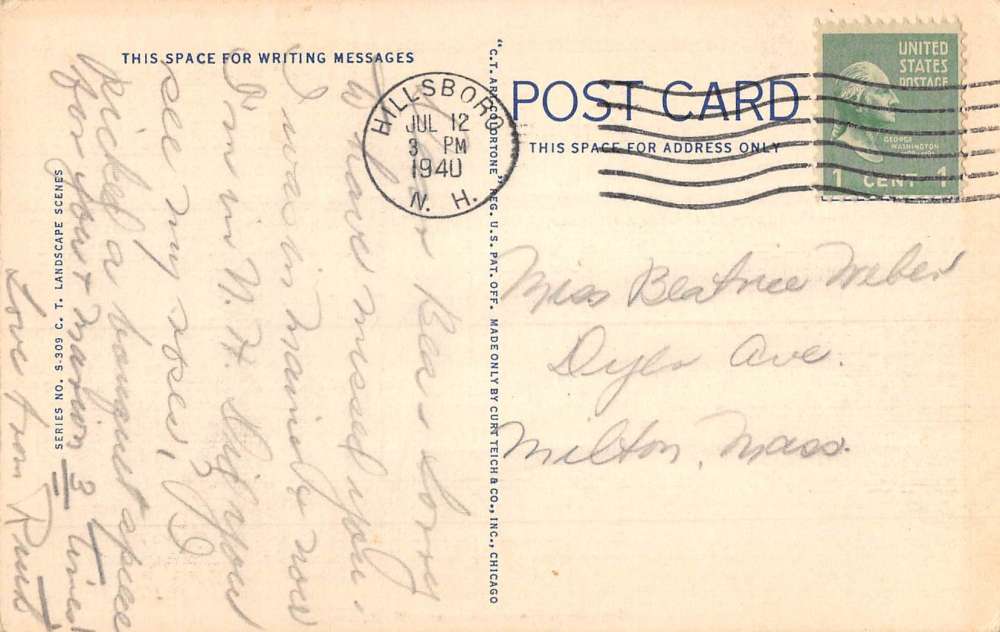 THIS SPACE FOR WRITING MESSAGES
POST CARD
THIS SPACE FOR ADDRESS ONLY
UNITED
STATES
POSTAGE
GEORGE
WASHINGTON
1 CENT 1
HILLSBORO
JUL 12
3 PM
1940
N. H.
Dear Bea: Sorry
to have missed you.
I was in Maine & now
I'm in N. H. Did you
see my roses, I
picked a bouquet apiece
for you & Marion 3 times
Love from Ruth
Miss Beatrice Weber
Dyer Ave.
Milton, Mass.
SERIES NO. S-309 C. T. LANDSCAPE SCENES
"C.T. ART-COLORTONE" REG. U.S. PAT. OFF. MADE ONLY BY CURT TEICH & CO., INC., CHICAGO